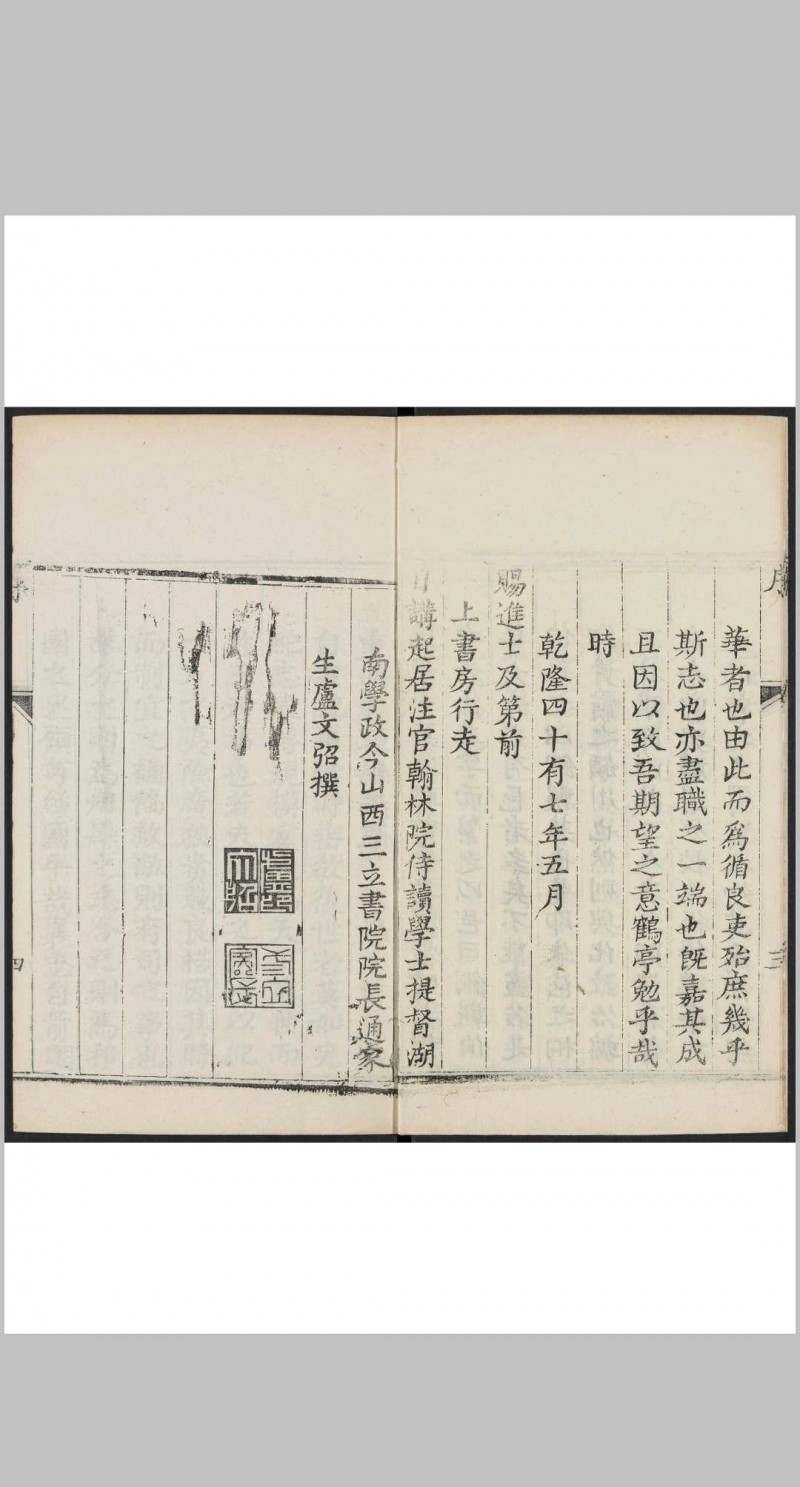 序
華者也由此而爲循良吏殆庶幾乎
斯志也亦盡職之一端也旣嘉其成
且因以致吾期望之意鶴亭勉乎哉
時
乾隆四十有七年五月
賜進士及第前
上書房行走
日講起居注官翰林院侍讀學士提督湖
三
南學政今山西三立書院院長通家
生盧文弨撰
序
四